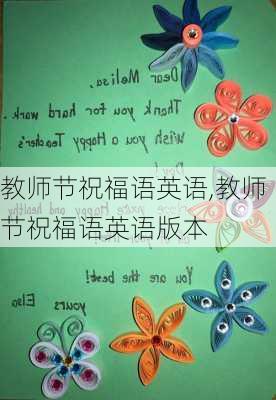 Dear Melisa,
Thank you for hard work.
Wish you a Happy Teacher's
Day!
教师节祝福语英语,教师
节祝福语英语版本
You are the best!
yours
Elsa